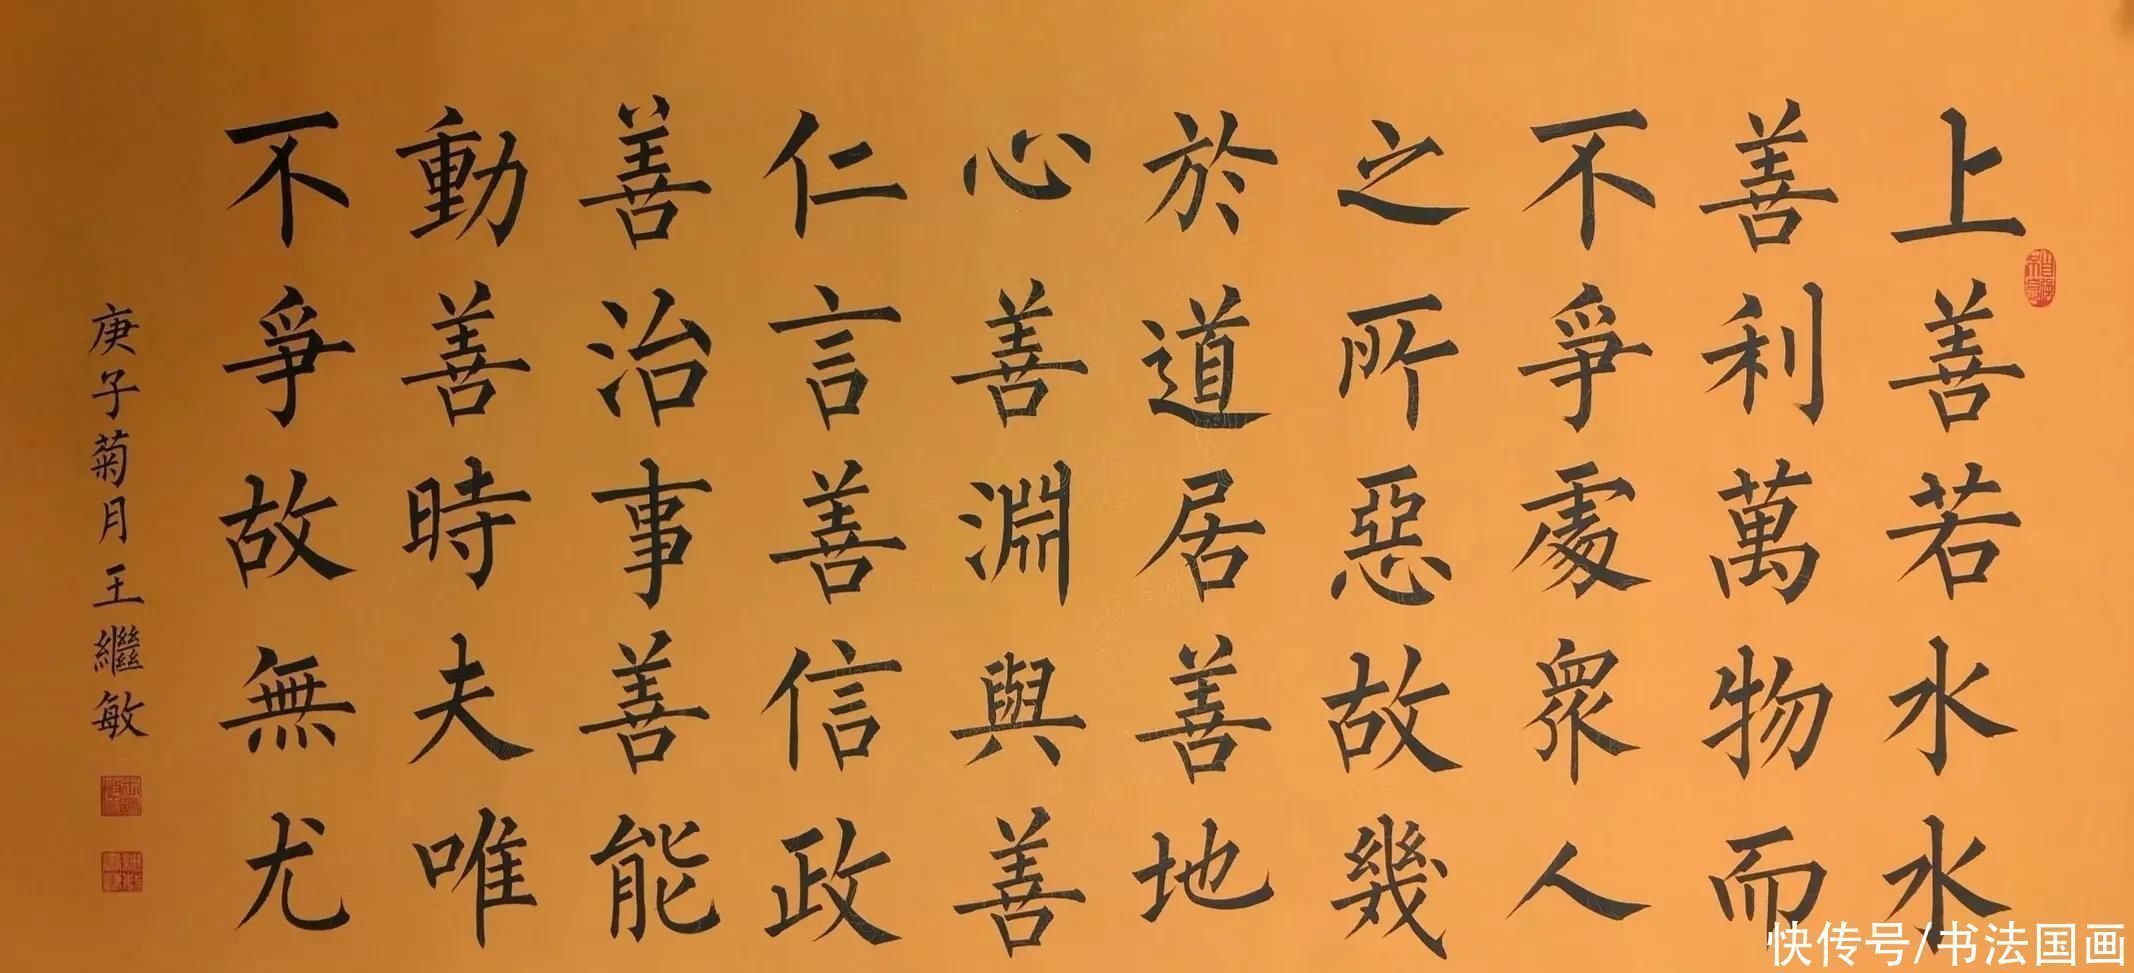 上善若水水
善利萬物而
不爭處衆人
之所惡故幾
於道居善地
心善淵與善
仁言善信政
善治事善能
動善時夫唯
不爭故無尤
庚子菊月王繼敏
快传号/书法国画